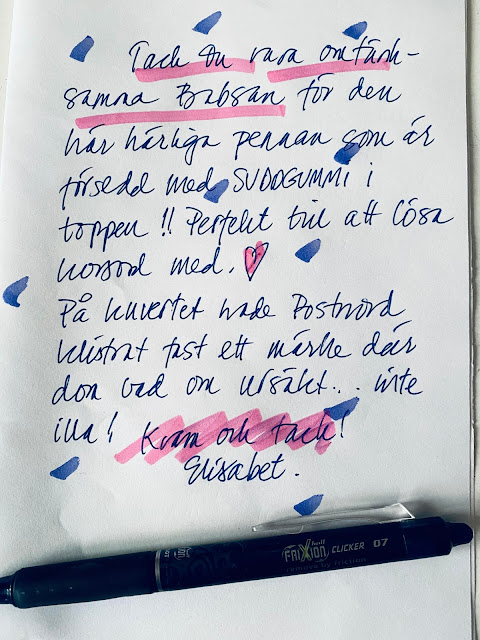 Tack du rara omtänk-
samma Babsan för den
här härliga pennan som är
försedd med SUDDGUMMI i
toppen !! Perfekt till att lösa
korsord med.
På kuvertet hade Postnord
klistrat fast ett märke där
dom bad om ursäkt... inte
illa! Kram och tack!
Elisabet.
ball
FRIXION CLICKER 07
remove by friction